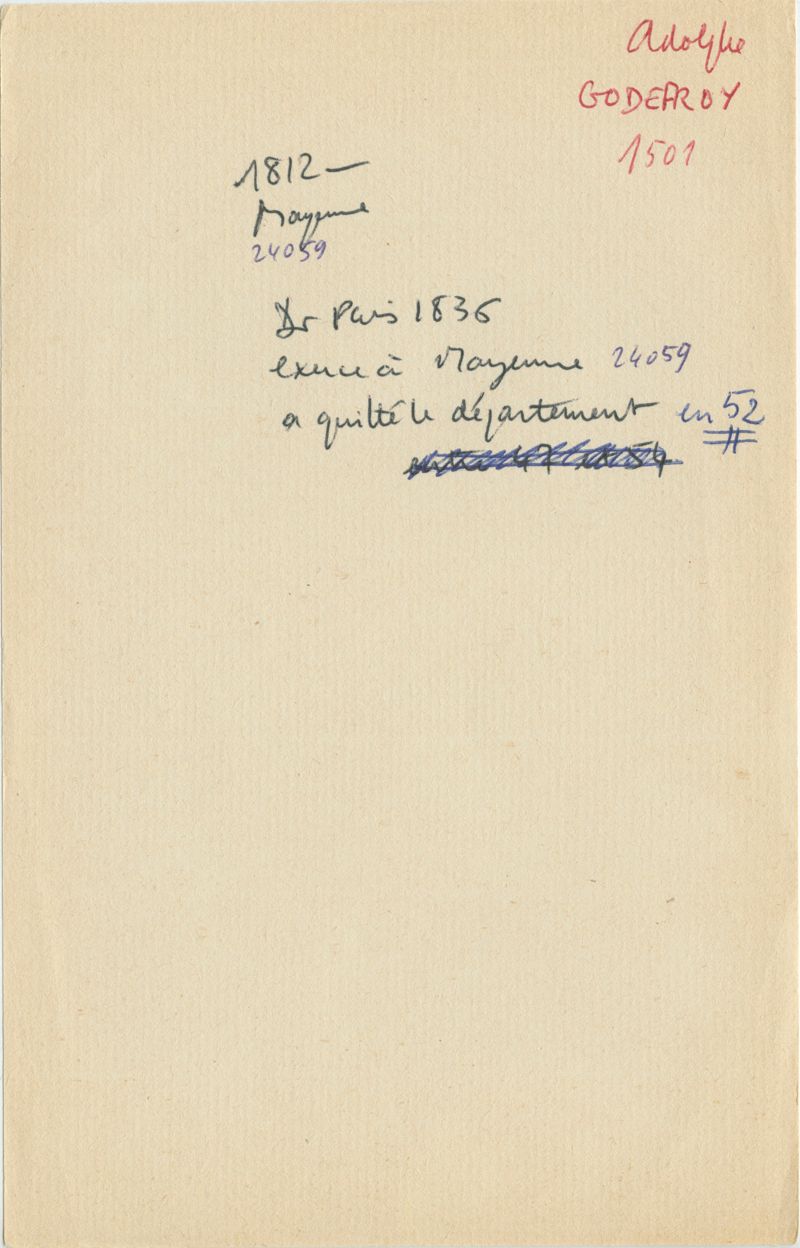 Adolphe
GODEFROY
1501
1812 —
Mayenne
24059
Dr Paris 1836
exerce à Mayenne 24059
a quitté le département en 52
entre 47 et 54